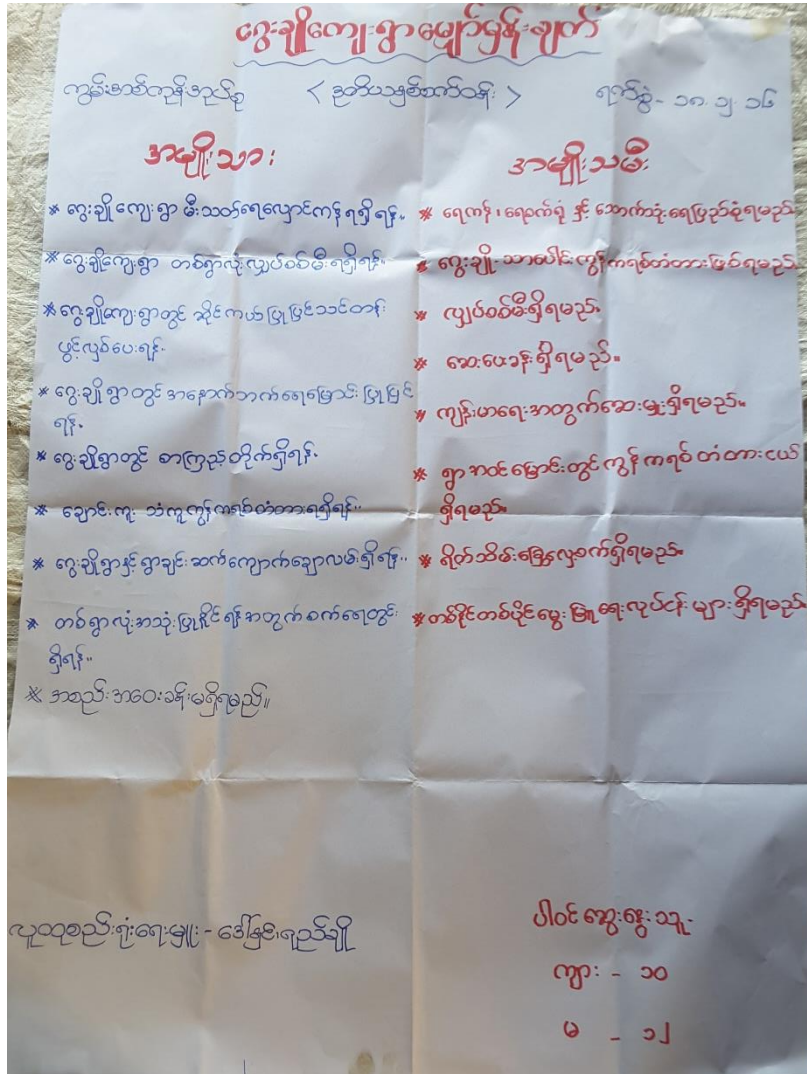 ငွေးချိုကျေးရွာမျှော်မှန်းချက်
ကွမ်းခြံကုန်းအုပ်စု < ဒုတိယနှစ်စက်ဝန်း > ရက်စွဲ - ၁၈.၁၂.၁၆
အမျိုးသား
* ငွေးချိုကျေးရွာ မီးသတ်ရေလှောင်ကန်ရရှိရန်။
* ငွေးချိုကျေးရွာ တစ်ရွာလုံးလျှပ်စစ်မီးရရှိရန်။
* ငွေးချိုကျေးရွာတွင် ဆိုင်ကယ်ပြုပြင်သင်တန်း
ဖွင့်လှစ်ပေးရန်။
* ငွေးချိုရွာတွင် အနောက်ဘက်ရေမြောင်းပြုပြင်
ရန်။
* ငွေးချိုရွာတွင် စာကြည့်တိုက်ရှိရန်။
* ချောင်းကူး သံကူကွန်ကရစ်တံတားရရှိရန်။
* ငွေးချိုရွာနှင့်ရွာချင်းဆက်ကျောက်ချောလမ်းရှိရန်။
* တစ်ရွာလုံးအသုံးပြုနိုင်ရန်အတွက်စက်ရေတွင်း
ရှိရန်။
* အစည်းအဝေးခန်းမရှိရမည်။
အမျိုးသမီး
* ရေကန်၊ ရေစက်ရုံ နှင့် သောက်သုံးရေပြည့်စုံရမည်။
* ငွေးချို-သာပေါင်းကွန်ကရစ်တံတားဖြစ်ရမည်။
* လျှပ်စစ်မီးရှိရမည်။
* ဆေးပေးခန်းရှိရမည်။
* ကျန်းမာရေးအတွက်ဆေးမှူးရှိရမည်။
* ရွာအဝင်မြောင်းတွင်ကွန်ကရစ်တံတားငယ်
ရှိရမည်။
* ရိတ်သိမ်းခြွေလှေ့စက်ရှိရမည်။
* တစ်နိုင်တစ်ပိုင်မွေးမြူရေးလုပ်ငန်းများရှိရမည်။
လူထုစည်းရုံးရေးမှူး - ဒေါ်နှင်းရည်ချို
ပါဝင်ဆွေးနွေးသူ-
ကျား - ၁၀
မ - ၁၂